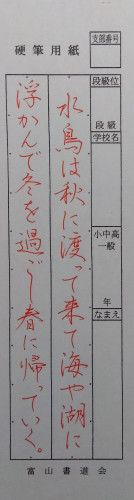 硬筆用紙
支部番号
段級位
段級
学校名
小中高
一般
年
なまえ
水鳥は秋に渡って来て海や湖に
浮かんで冬を過ごし春に帰っていく。
富山書道会